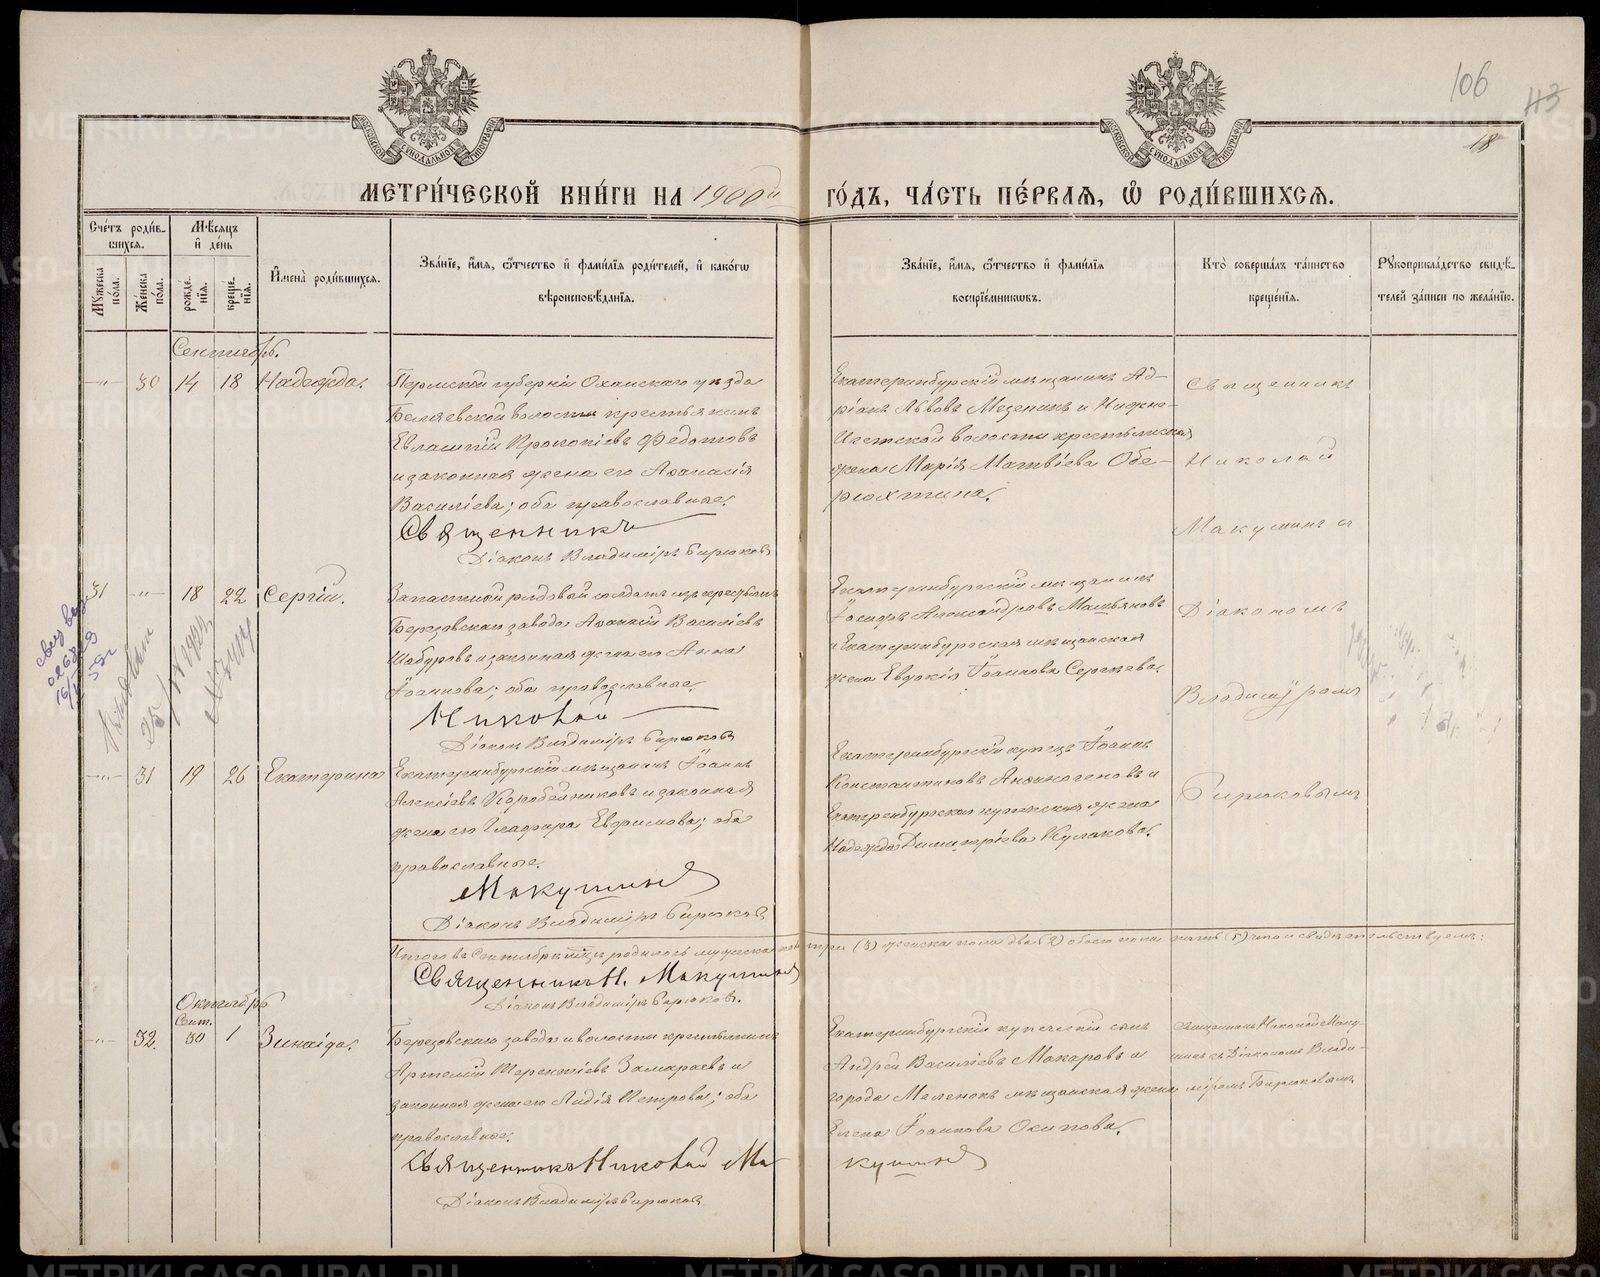 106
113
18
МЕТРИ́ЧЕСКОЙ КНИ́ГИ НА 1900й ГО́ДЪ, ЧА́СТЬ ПЕ́РВАЯ, Ѿ РОДИ́ВШИХСЯ.
Сче́тъ роди́в-
шихся.
Му́жеска по́ла.
Же́нска по́ла.
Мѣ́сяцъ
и де́нь
рожде́-
нія.
креще́-
нія.
Имена̀ роди́вшихся.
Зва́ніе, и́мя, ѻ҆́тчество и фами́лія роди́телей, и како́гѡ
вѣроисповѣ́данія.
Зва́ніе, и́мя, ѻ҆́тчество и фами́лія
воспріе́мниковъ.
Кто̀ соверша́лъ та́инство
креще́нія.
Рꙋкоприкла́дство свидѣ́-
телей за́писи по жела́нію.
Сентябрь.
-"- 30 14 18 Надежда.
Пермской губерніи Оханскаго уѣзда
Беляевской волости крестьянинъ
Евлампій Прокопіевъ Федотовъ
и законная жена его Аѳанасія
Василіева; оба православные.
Священникъ
Діаконъ Владиміръ Бирюковъ
Екатеринбургскій мѣщанинъ Ад-
ріанъ Львовъ Мезенинъ и Нижне-
Исетской волости крестьянская
жена Марія Матвіева Обе-
рюхтина.
Священникъ
Николай
Макушинъ и
Діакономъ
Владиміромъ
Бирюковымъ
31 -"- 18 22 Сергій.
Запасный рядовой солдатъ изъ крестьянъ
Березовскаго завода Аѳанасій Василіевъ
Шабуровъ и законная жена его Анна
Іоаннова; оба православные.
Николай
Діаконъ Владиміръ Бирюковъ
Екатеринбургскій мѣщанинъ
Іосифъ Александровъ
и Екатеринбургская мѣщанская
жена Евдокія Іоаннова Сергѣева.
-"- 31 19 26 Екатерина
Екатеринбургскій мѣщанинъ Іоаннъ
Алексіевъ Коробейниковъ и законная
жена его Глафира Евфимова; оба
православные.
Макушинъ
Діаконъ Владиміръ Бирюковъ
Екатеринбургскій купецъ Іоаннъ
Константиновъ Анфиногеновъ и
Екатеринбургская купеческая жена
Надежда Димитріева Кулакова.
Итого въ Сентябрѣ мцѣ родилось мужеска пола три (3) женска пола два (2) обоего пола пять (5) что и свидѣтельствуемъ:
Священникъ Н. Макушинъ
Діаконъ Владиміръ Бирюковъ.
Октябрь
Сент.
-"- 32. 30 1 Зинаида.
Березовскаго завода и волости крестьянинъ
Артемій Терентіевъ Замараевъ и
законная жена его Лидія Петрова; оба
православные.
Священникъ Николай Ма-
кушинъ
Діаконъ Владиміръ Бирюковъ
Екатеринбургскій купеческій сынъ
Андрей Василіевъ Макаровъ и
города Меленокъ мѣщанская жена
Елена Іоаннова Осипова.
Священникъ Николай Маку-
шинъ съ Діакономъ Влади-
міромъ Бирюковымъ
METRIKI.GASO-URAL.RU